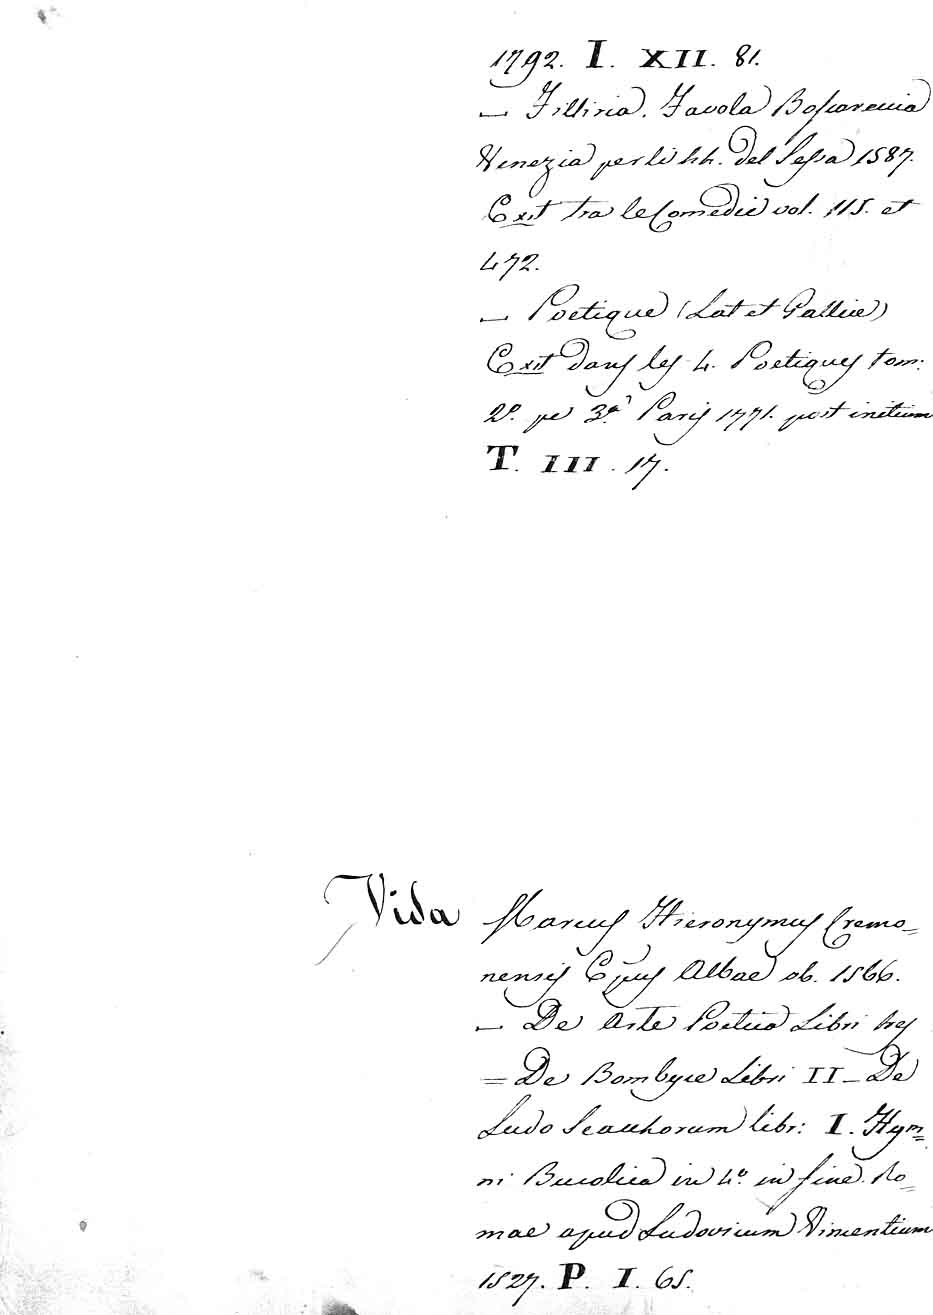 1792. I. XII. 81.
— Filliria. Favola Boscareccia
Venezia per li hh. del Sessa 1587.
Exit tra le Comedie vol. 115. et
472.
— Poetique (Lat et Gallice)
Exit dans les 4. Poetiques tom:
2º. pe 3ª. Paris 1771. post initium
T. III. 17.
Vida Marcus Hieronymus Cremo=
nensis Epus Albae ob. 1566.
— De Arte Poetica Libri tres
= De Bombyce Libri II — De
Ludo Scacchorum libr: I. Hym=
ni Bucolica in 4º. in fine. Ro=
mae apud Ludovicum Vincentium
1527. P. I. 65.